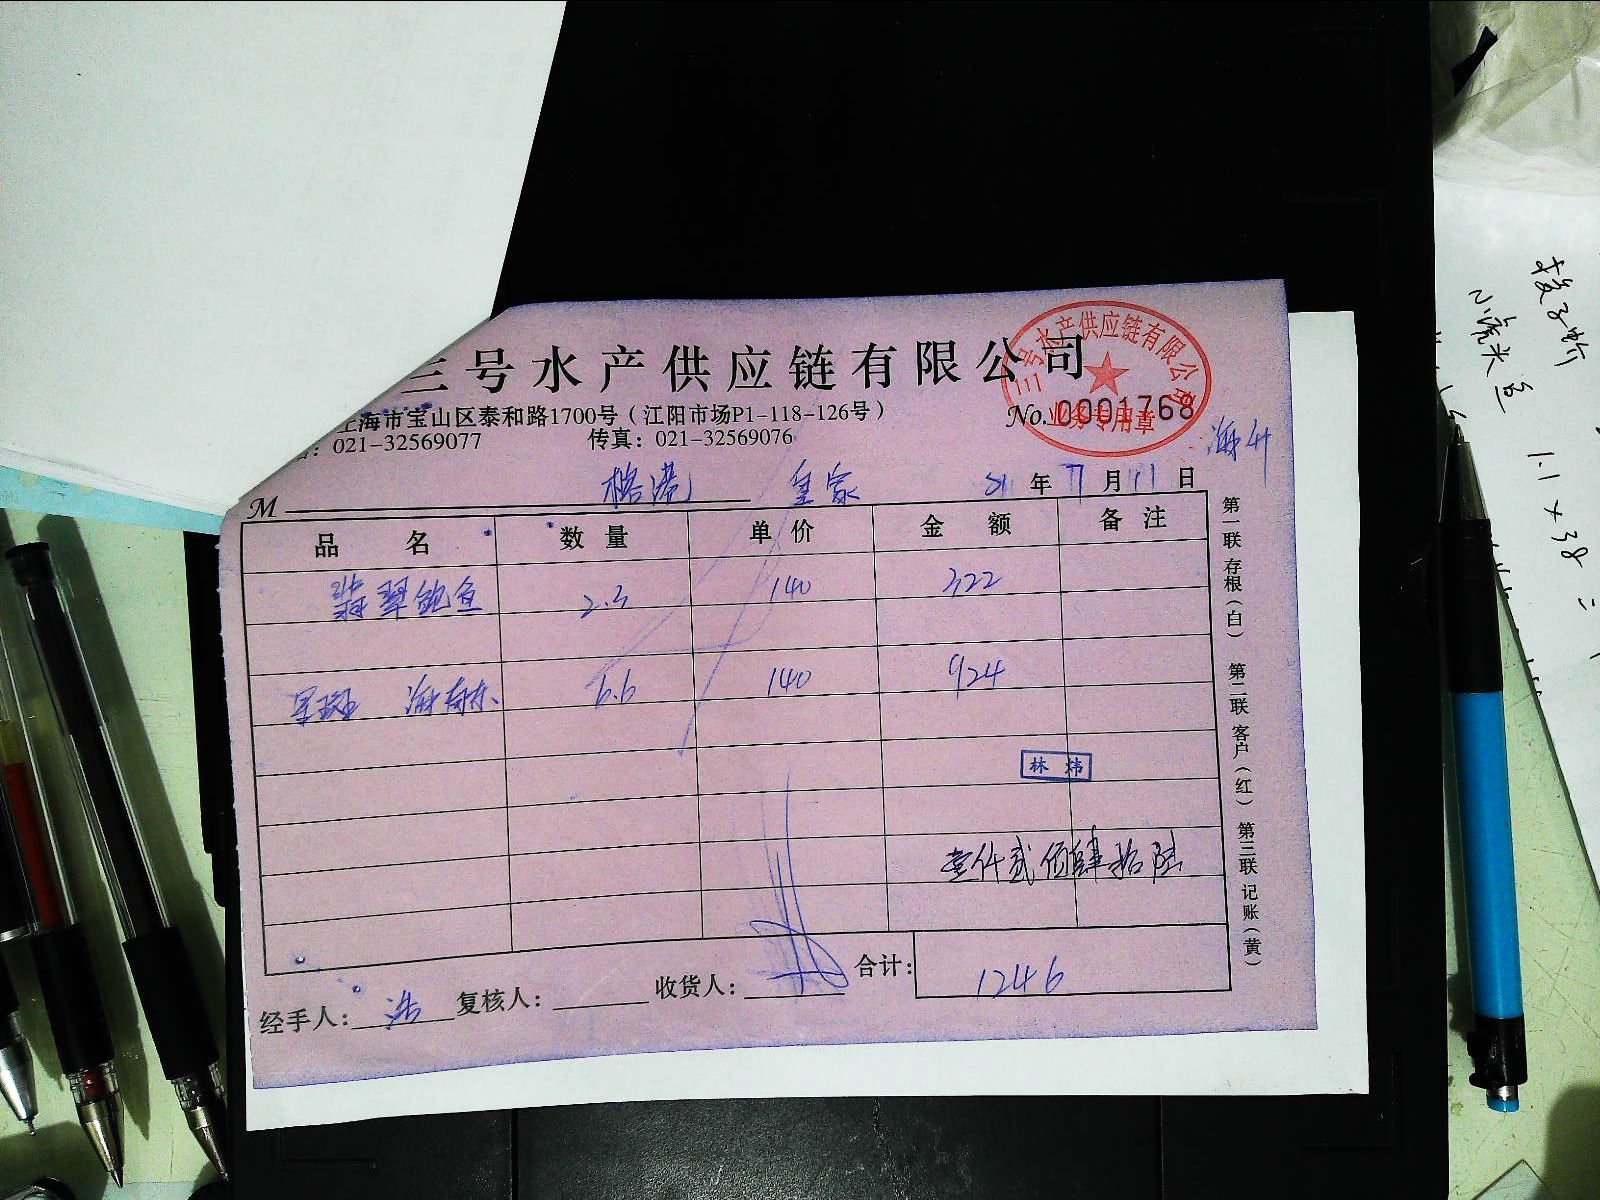 三号水产供应链有限公司
三号水产供应链有限公司
业务专用章
上海市宝山区泰和路1700号（江阳市场P1-118-126号）
No.0001768
：021-32569077 传真：021-32569076
M 榕港 皇家 21 年 7 月 11 日
品名 数量 单价 金额 备注
翡翠鲍鱼 2.3 140 322
星斑 6.6 140 924
林炜
壹仟贰佰肆拾陆
合计： 1246
经手人： 浩 复核人： 收货人：
第一联 存根（白） 第二联 客户（红） 第三联 记账（黄）
1.1 × 38 =